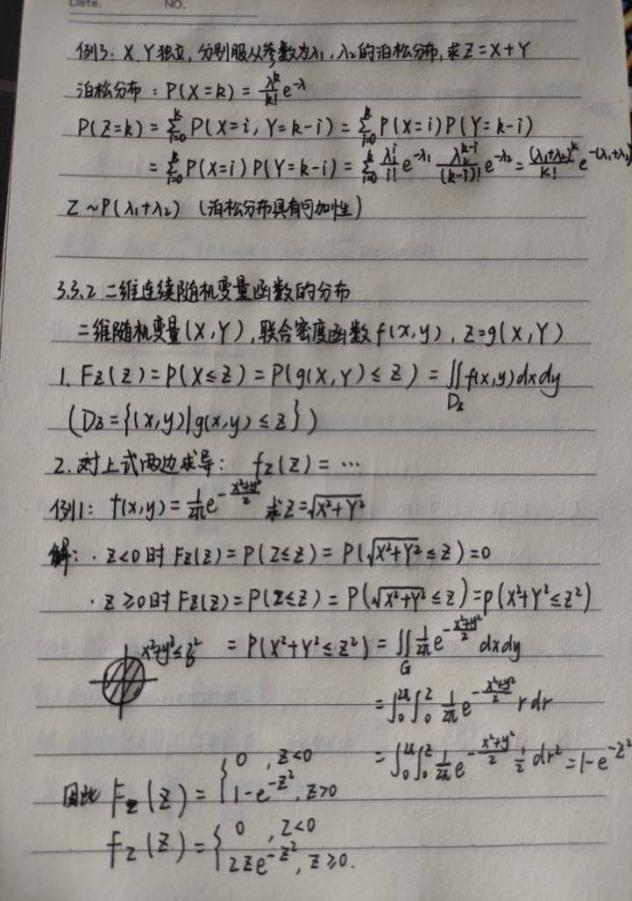 Date. NO.
例3: X, Y独立, 分别服从参数为λ₁, λ₂的泊松分布, 求Z=X+Y
泊松分布: P(X=k) = λ^k/k! e^(-λ)
P(Z=k) = Σ_{i=0}^{k} P(X=i, Y=k-i) = Σ_{i=0}^{k} P(X=i)P(Y=k-i)
= Σ_{i=0}^{k} P(X=i)P(Y=k-i) = Σ_{i=0}^{k} λ₁^i/i! e^(-λ₁) λ₂^(k-i)/(k-i)! e^(-λ₂) = (λ₁+λ₂)^k/k! e^(-(λ₁+λ₂))
Z~P(λ₁+λ₂) (泊松分布具有可加性)
3.3.2 二维连续随机变量函数的分布
二维随机变量(X,Y), 联合密度函数f(x,y), Z=g(X,Y)
1. F_Z(Z) = P(X≤Z) = P(g(X,Y)≤Z) = ∬_{Dz} f(x,y)dxdy
(Dz={(x,y)|g(x,y)≤z})
2. 对上式两边求导: f_Z(Z) = ⋯
例1: f(x,y) = 1/2π e^(-(x²+y²)/2) 求Z=√(X²+Y²)
解: · Z<0时 F_Z(Z) = P(Z≤Z) = P(√(X²+Y²)≤Z) = 0
· Z≥0时 F_Z(Z) = P(Z≤Z) = P(√(X²+Y²)≤Z) = P(X²+Y²≤Z²)
x²+y²≤z² = P(X²+Y²≤Z²) = ∬_G 1/2π e^(-(x²+y²)/2) dxdy
= ∫₀^{2π}∫₀^{Z} 1/2π e^(-(x²+y²)/2) rdr
= ∫₀^{2π}∫₀^{Z} 1/2π e^(-(x²+y²)/2) 1/2 dr² = 1-e^(-Z²)
因此 F_Z(Z) = { 0, Z<0
1-e^(-Z²), Z>0
f_Z(Z) = { 0, Z<0
2Ze^(-Z²), Z≥0.